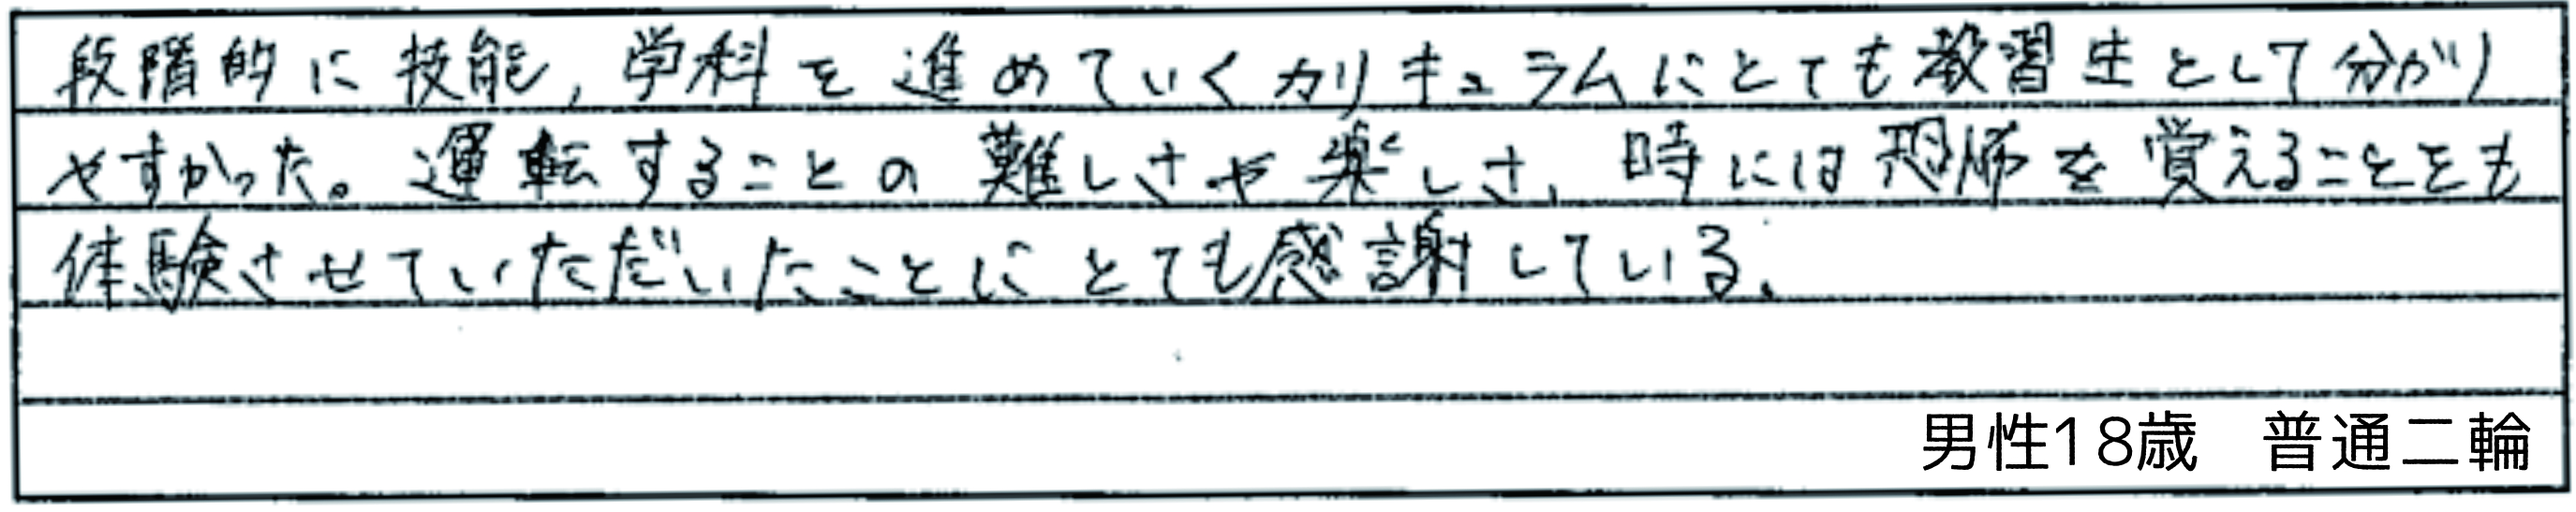 段階的に技能,学科を進めていくカリキュラムにとても教習生として分かり
やすかった。運転することの難しさや楽しさ,時には恐怖を覚えることをも
体験させていただいたことにとても感謝している.
男性18歳 普通二輪